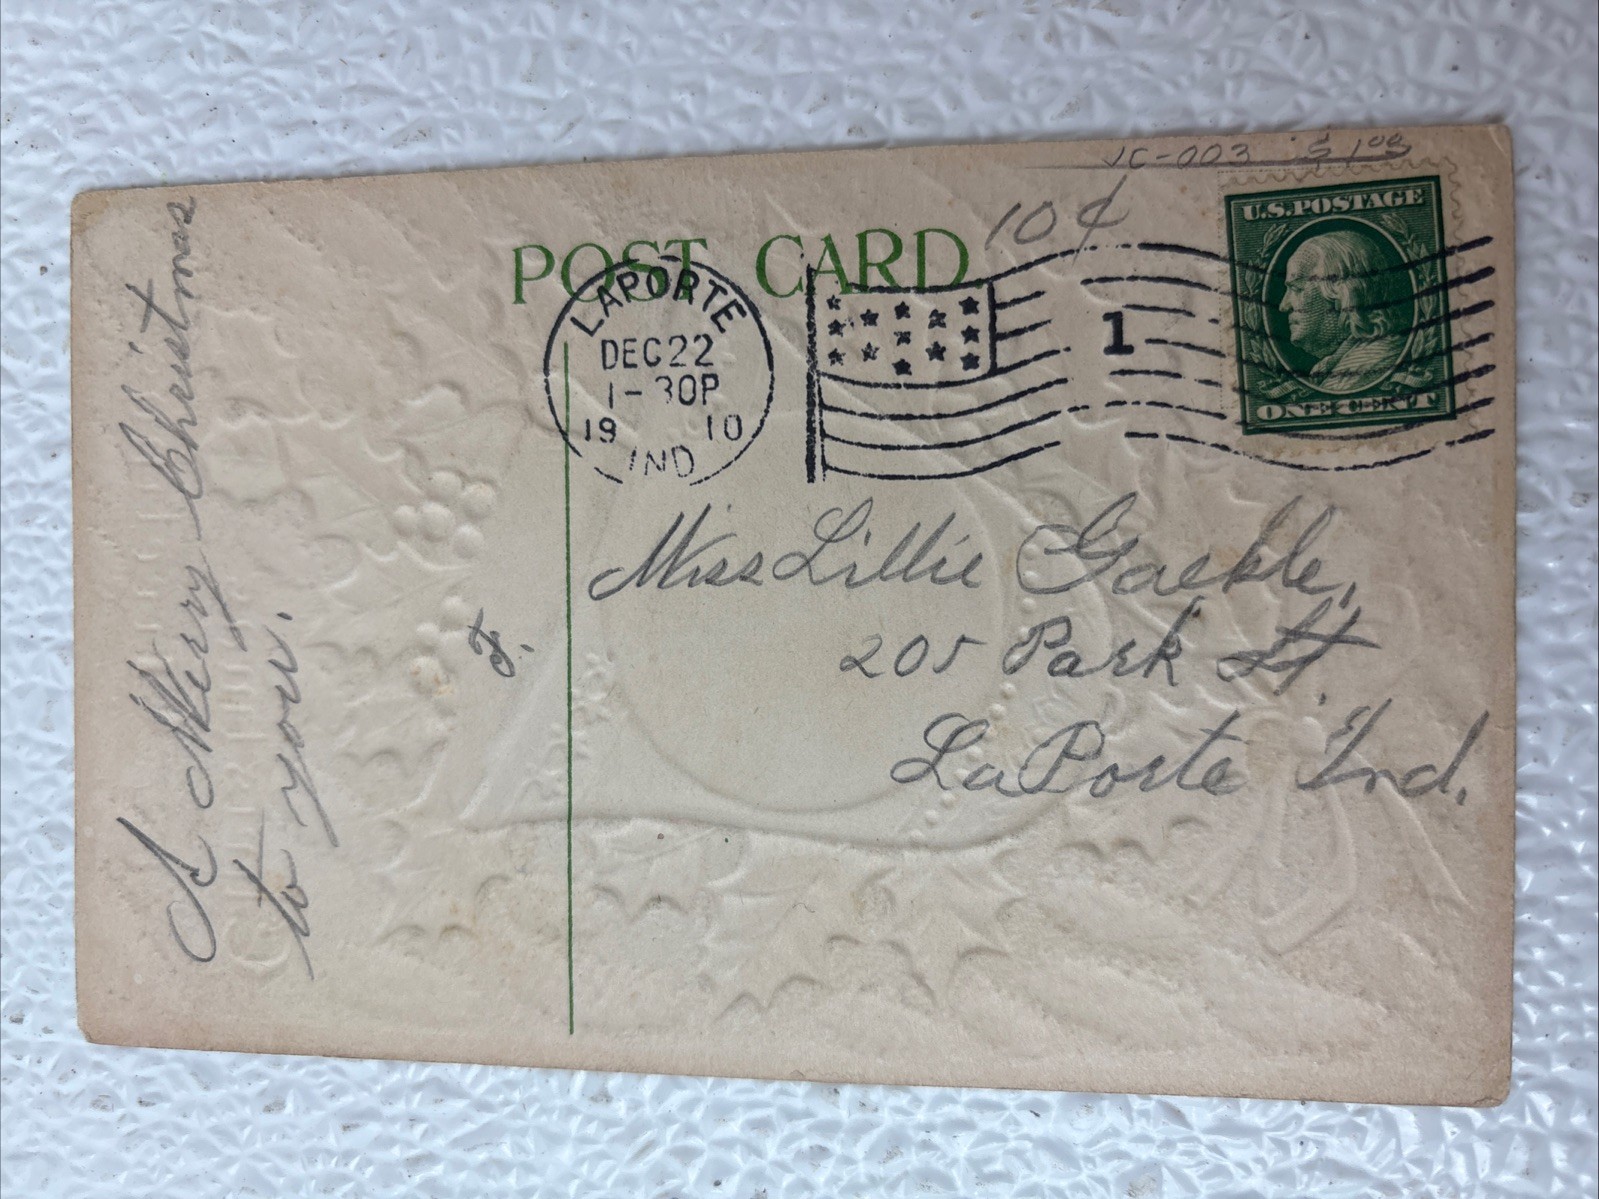 VC-003 $1.00
10¢
POST CARD.
LAPORTE
DEC 22
1-30P
1910
IND
1
U.S. POSTAGE
ONE CENT
A Merry Christmas
to you.
F.
Miss Lillie Gaekle,
205 Park St.
LaPorte Ind.